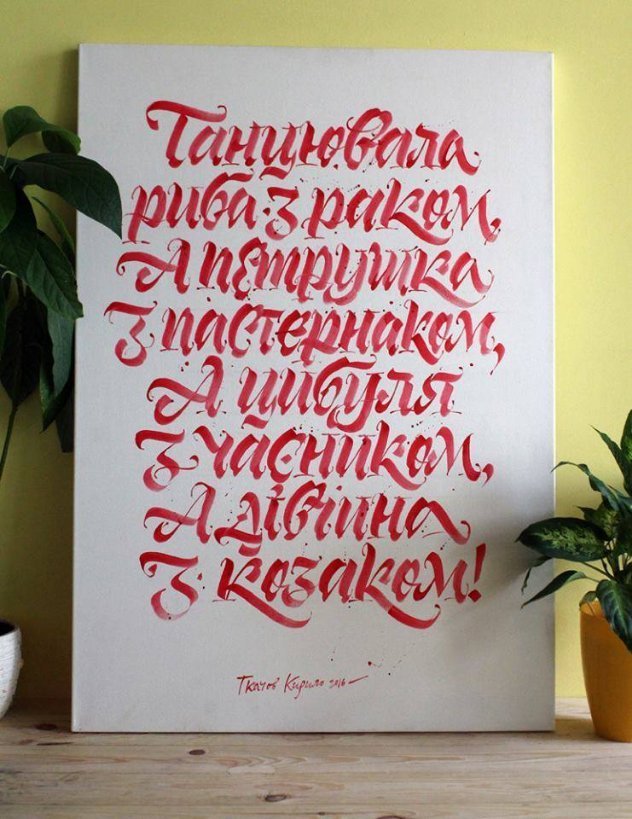 Танцювала
риба з раком,
А петрушка
з пастернаком,
А цибуля
з часником,
А дівчина
з козаком!
Ткачов Кирило 2016